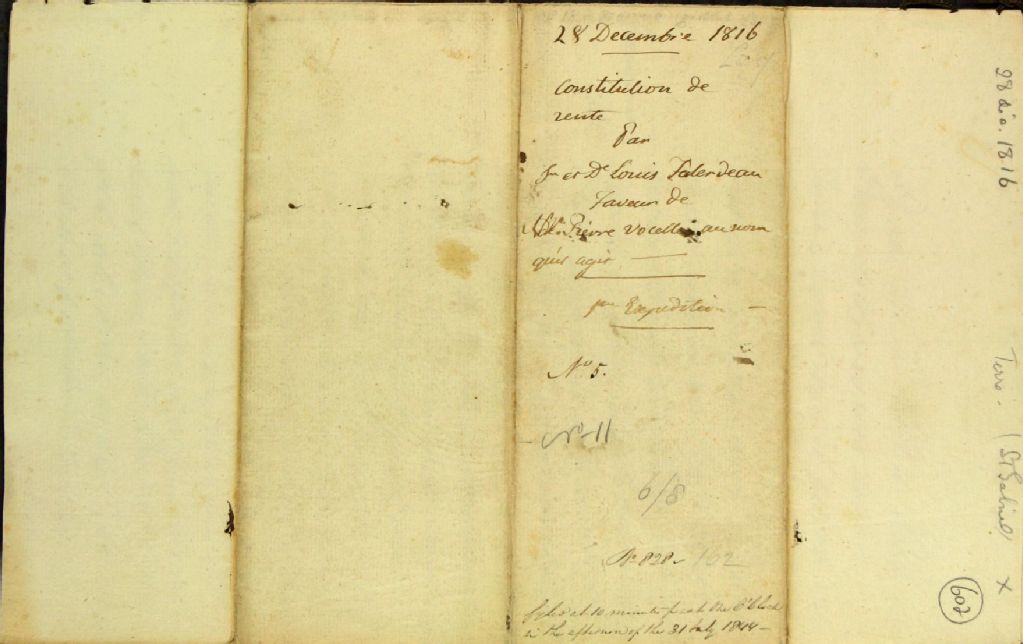 28 Decembre 1816
Constitution de
rente
Par
Sr et De Louis
faveur de
Pierre au nom
qu'il agit
pre Expedition
No 5.
No-11
6/8
No 828 102
at 10 minutes past the O'Clock
in the afternoon of the 31 July 1844
28 déc. 1816
Terre. (St Gabriel) X
602